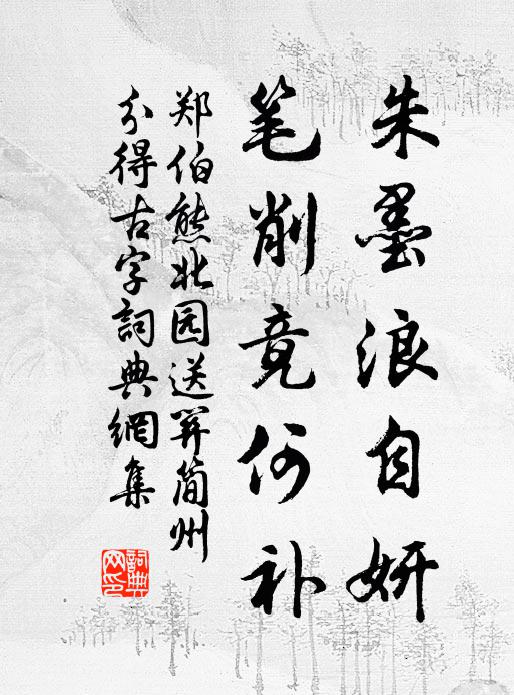 朱墨浪自妍
笔削竟何补
郑伯熊北园送羿简州
分得古字詞典網集
詞典
网印